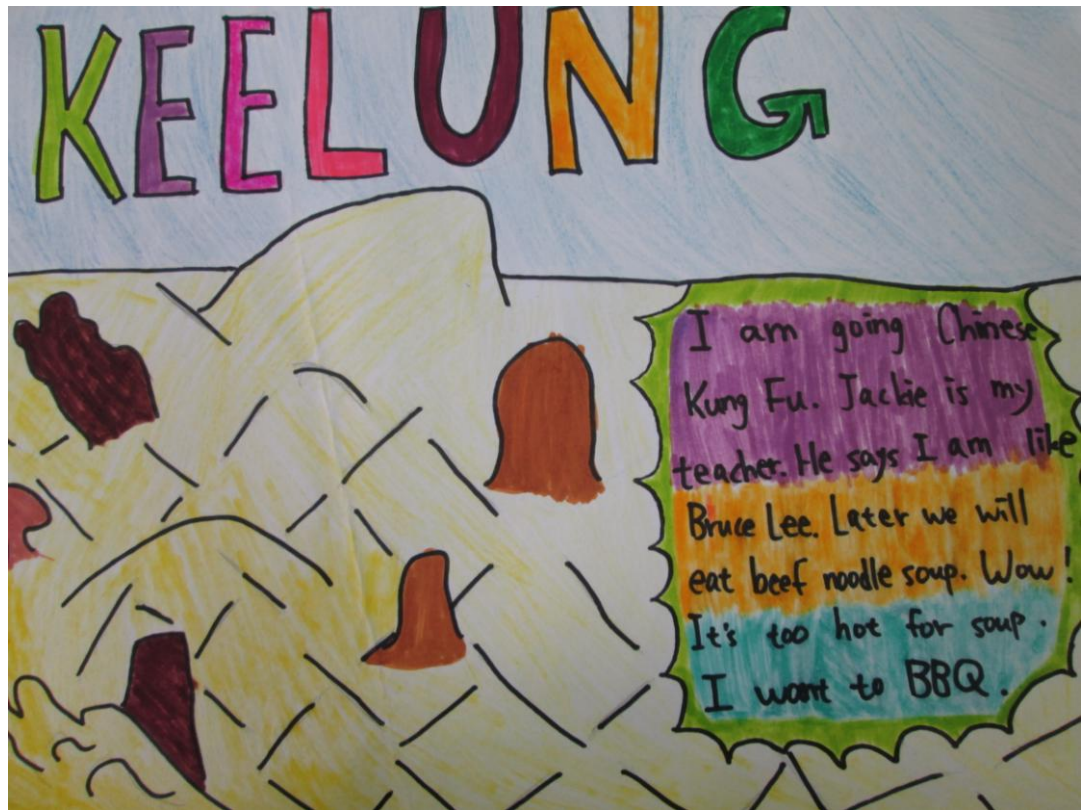 KEELUNG
I am going Chinese
Kung Fu. Jackie is my
teacher. He says I am like
Bruce Lee. Later we will
eat beef noodle soup. Wow!
It's too hot for soup.
I want to BBQ.